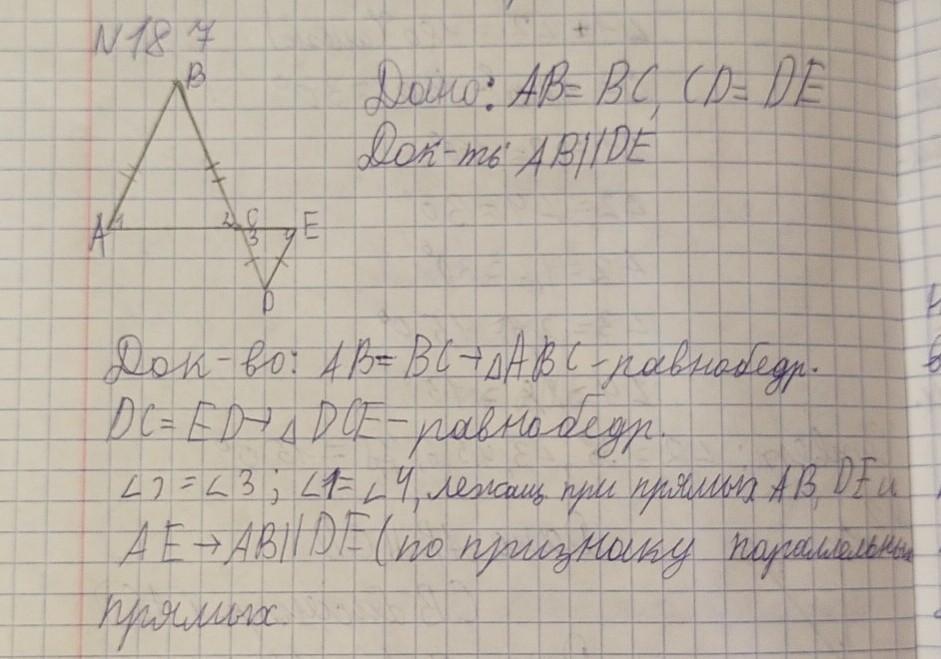 N 18 7
B
Дано: AB = BC, CD = DE
Док-ть AB || DE
A 1 2 C 3 4 E
D
Док-во: AB = BC → △ABC - равнобедр.
DC = ED → △DCE - равнобедр.
∠2 = ∠3; ∠1 = ∠4, лежащ. при прямых AB, DE и
AE → AB || DE (по признаку параллельных
прямых.